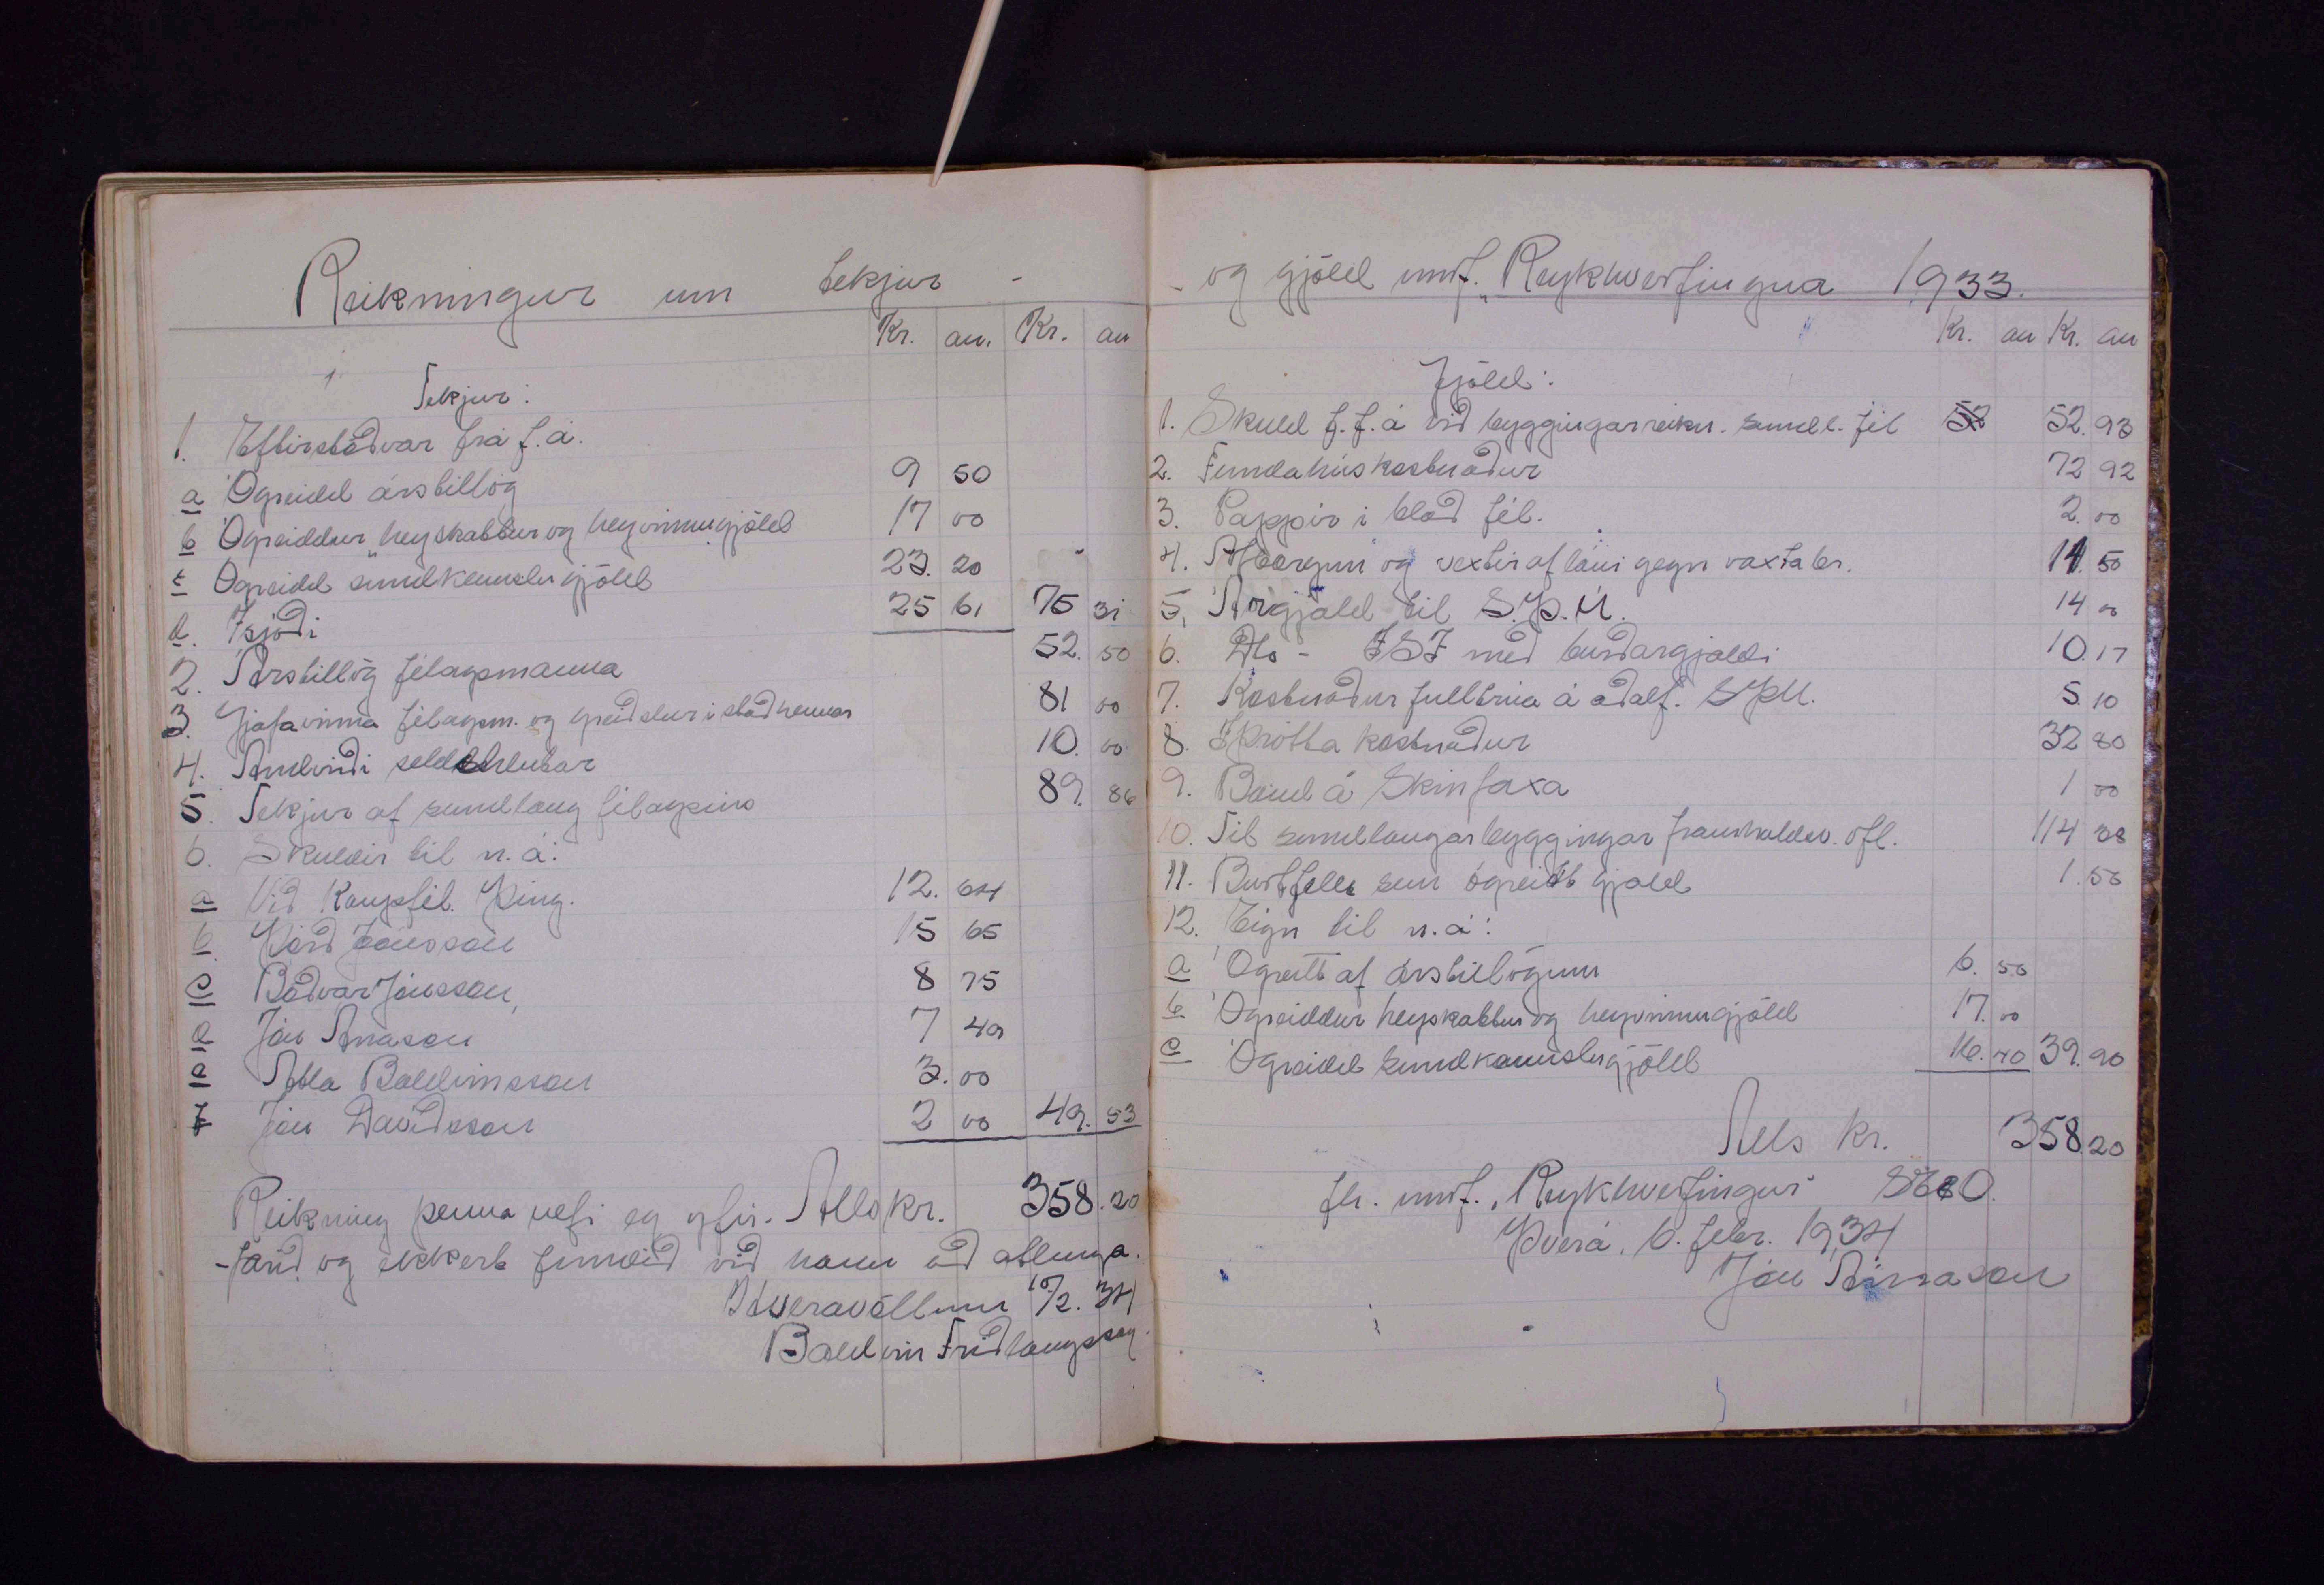 Reikningur um tekjur -
Kr. au. Kr. au
Tekjur:
1. Eftirstöðvar frá f. á.
a Ógreidd árstillög 9 50
b Ógreiddur "heyskattur og heyvinnugjöld 17 00
c Ógreidd sundkennslugjöld 23. 20
d. Í sjóði 25 61 75 31
2. Árstillög félagsmanna 52. 50
3. Gjafavinna félagsm. og greiðslur í stað hennar 81 00
4. Andvirði seldr 10. 00
5. Tekjur af sundlaug félagsins 89. 86
6. Skuldir til n. á:
a Við Kaupfél. Þing. 12. 64
b Þórð Jónsson 15 65
c Böðvar Jónsson, 8 75
d Jón Árnason 7 49
e Atla Baldvinsson 3. 00
f Jón Davíðsson 2 00 49. 53
Reikning þenna hefi eg yfir- Alls kr. 358. 20
-farið og ekkert fundið við hann að athuga.
Hveravöllum 10/2. 34
Baldvin Friðlaugsson
- og gjöld umf. "Reykhverfingur 1933.
Kr. au Kr. au
Gjöld:
1. Skuld f. f. á við byggingarreikn. sundl. fél 52. 93
2. Fundahúskostnaður 72 92
3. Pappír í blað fél. 2. 00
4. Afborgun og vextir af láni gegn vaxtabr. 11. 50
5. Árgjald til S.Þ.U. 14 00
6. Do - ÍSÍ með burðargjaldi 10. 17
7. Kostnaður fulltrúa á aðalf. SÞU. 5. 10
8. Íþróttakostnaður 32 80
9. Band á Skinfaxa 1 00
10. Til sundlaugarbyggingar framhaldsv. ofl. 114 38
11. Burtfelld sem ógreitt gjald 1. 50
12. Eign til n. á:
a Ógreitt af árstillögum 6. 50
b Ógreiddur heyskattur og heyvinnugjöld 17. 00
c Ógreidd sundkennslugjöld 16. 40 39. 90
Alls kr. 358. 20
f.h. umf. "Reykhverfingur"
Þverá, 6. febr. 1934
Jón Árnason